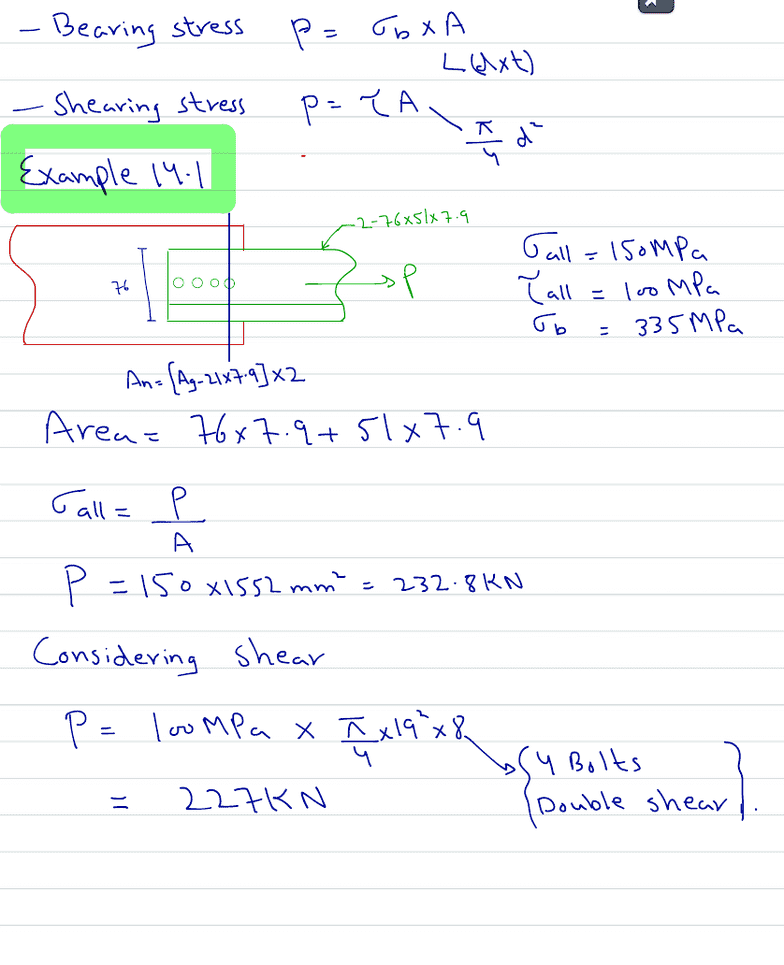 – Bearing stress P = σb × A
L(d×t)
– Shearing stress P = τ A
π/4 d²
Example 14.1
2-76×51×7.9
76
P
σall = 150MPa
τall = 100 MPa
σb = 335MPa
An = [Ag-21×7.9]×2
Area = 76×7.9 + 51×7.9
σall = P/A
P = 150 ×1552 mm² = 232.8KN
Considering shear
P = 100MPa × π/4 ×19²×8
= 227KN
{4 Bolts
Double shear}.